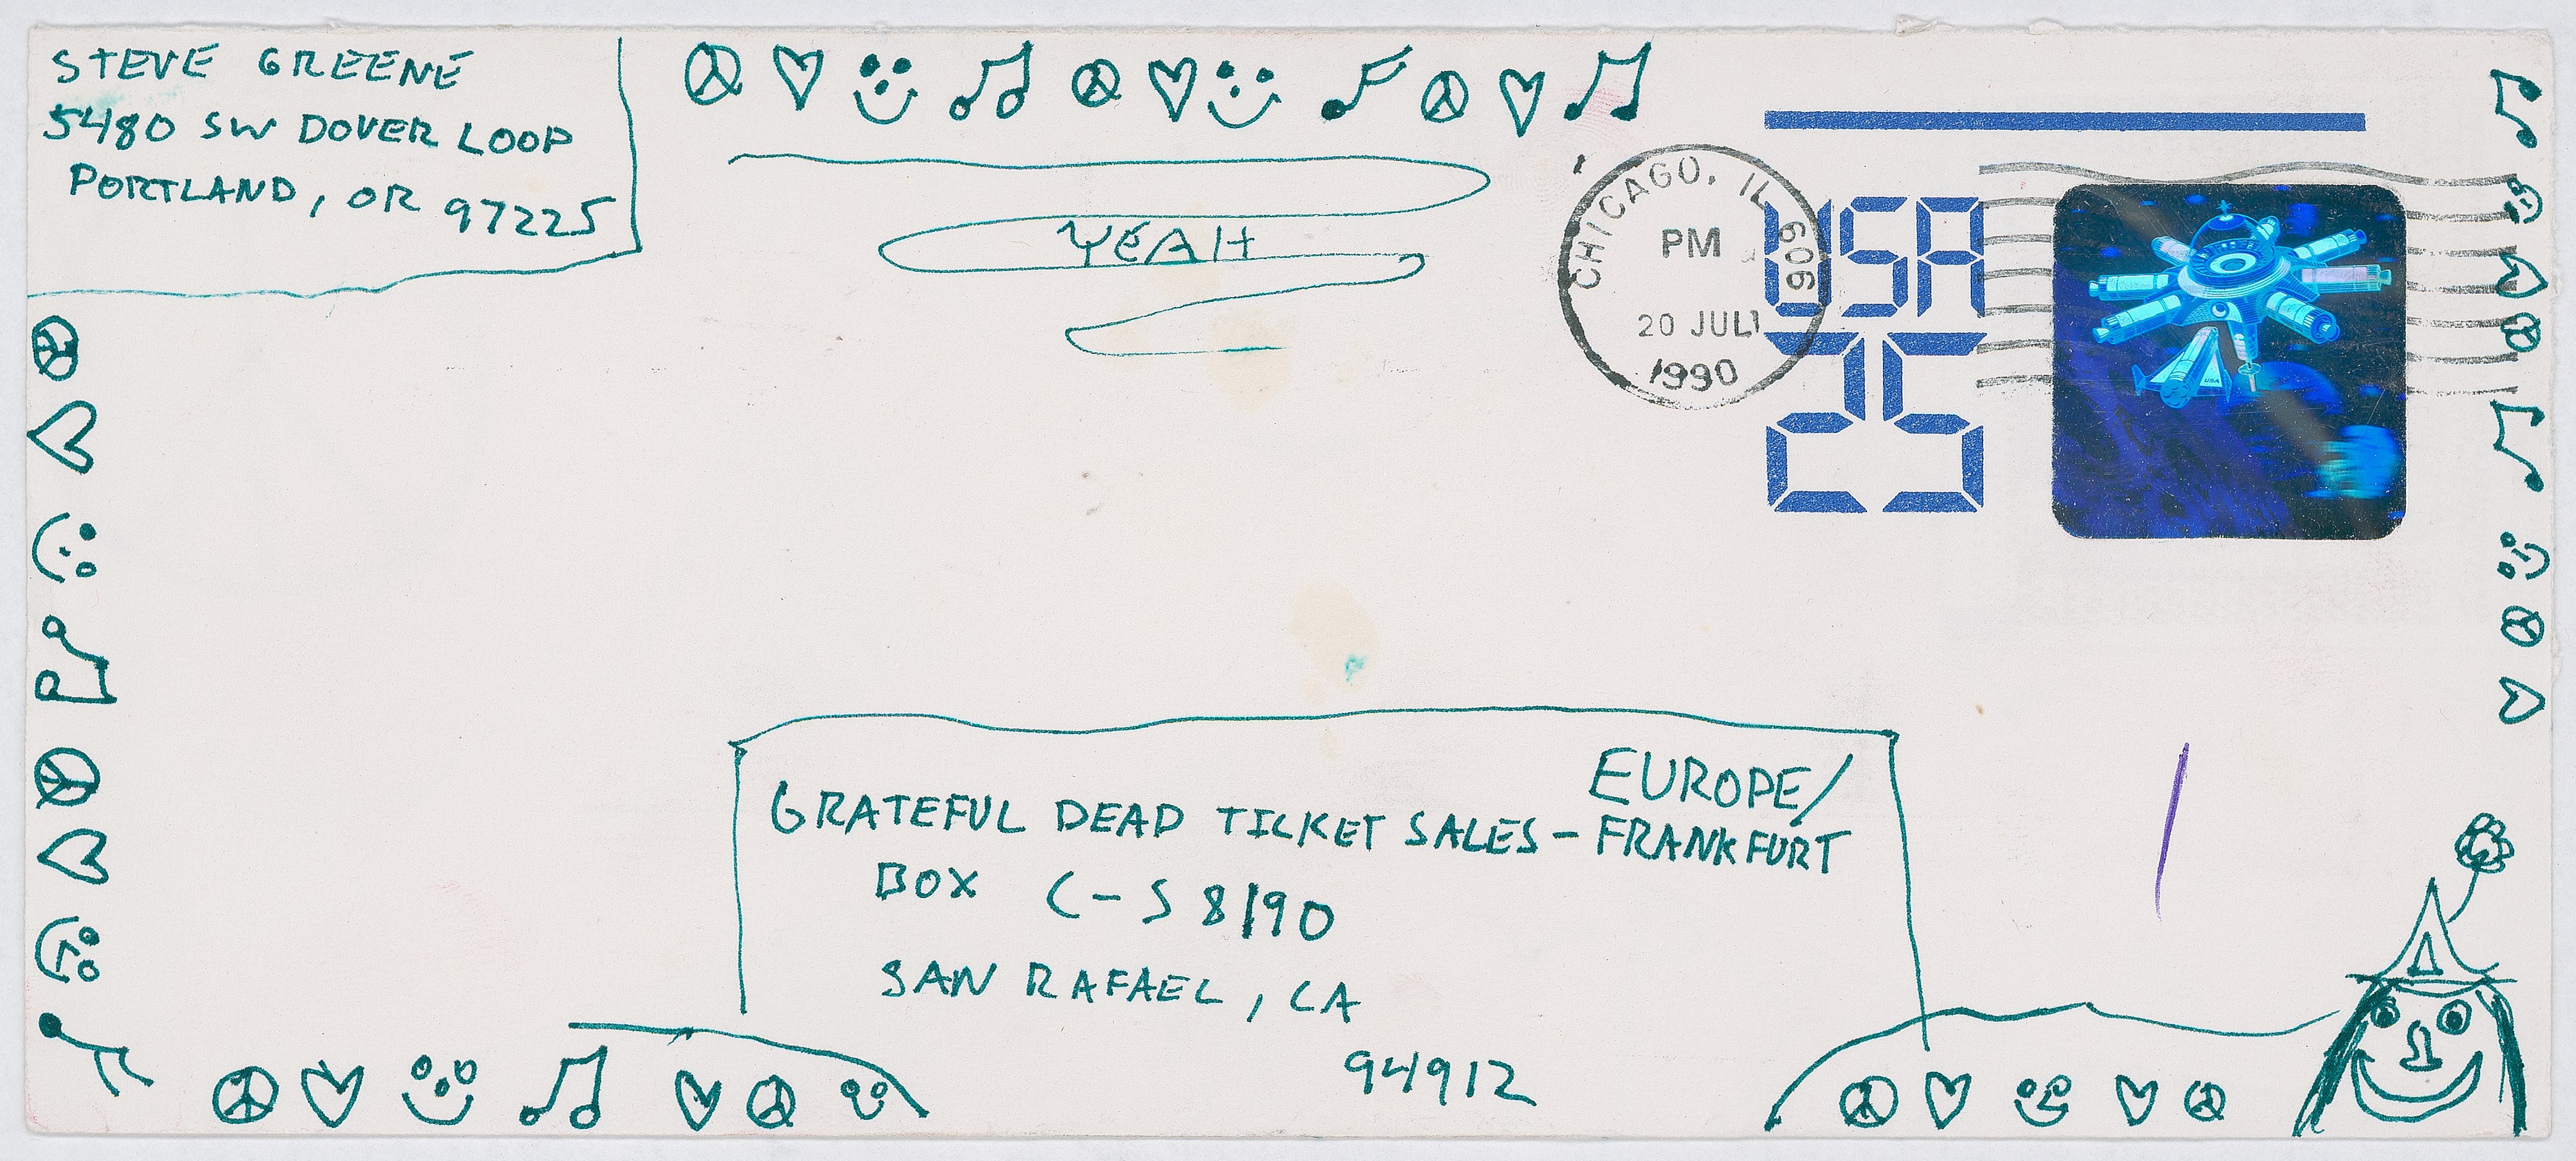 STEVE GREENE
5480 SW DOVER LOOP
PORTLAND, OR 97225
YEAH
CHICAGO, IL 606
PM
20 JUL
1990
USA
25
USA
EUROPE/
GRATEFUL DEAD TICKET SALES - FRANKFURT
BOX C-S 8190
SAN RAFAEL, CA
94912